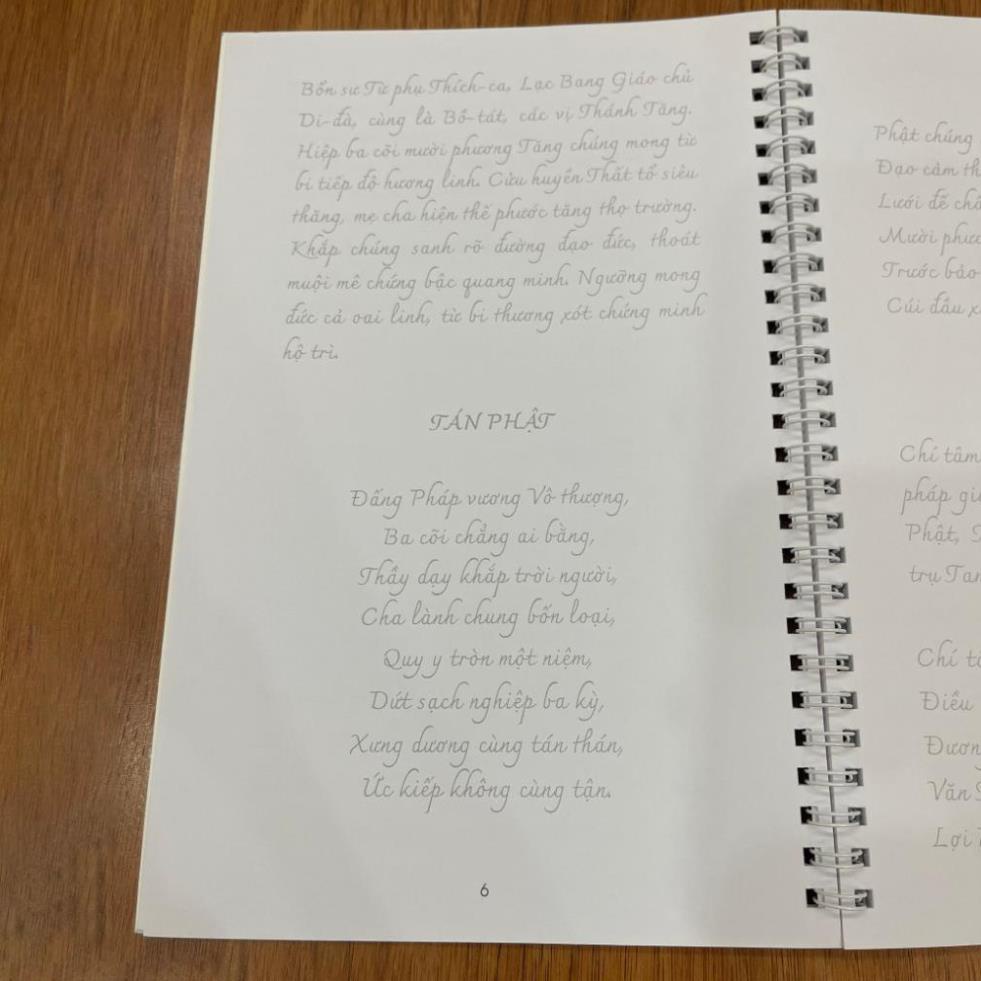 Bổn sư Từ phụ Thích-ca, Lạc Bang Giáo chủ
Di-đà, cùng là Bồ-tát, các vị Thánh Tăng.
Hiệp ba cõi mười phương Tăng chúng mong từ
bi tiếp độ hương linh. Cửu huyền Thất tổ siêu
thăng, mẹ cha hiện thế phước tăng thọ trường.
Khắp chúng sanh rõ đường đạo đức, thoát
muội mê chứng bậc quang minh. Ngưỡng mong
đức cả oai linh, từ bi thương xót chứng minh
hộ trì.
TÁN PHẬT
Đấng Pháp vương Vô thượng,
Ba cõi chẳng ai bằng,
Thầy dạy khắp trời người,
Cha lành chung bốn loại,
Quy y tròn một niệm,
Dứt sạch nghiệp ba kỳ,
Xưng dương cùng tán thán,
Ức kiếp không cùng tận.
6
Phật chúng
Đạo cảm th
Lưới đế châ
Mười phươ
Trước bảo
Cúi đầu x
Chí tâm
pháp gi
Phật,
trụ Tam
Chí tâ
Điều
Đươn
Văn S
Lợi